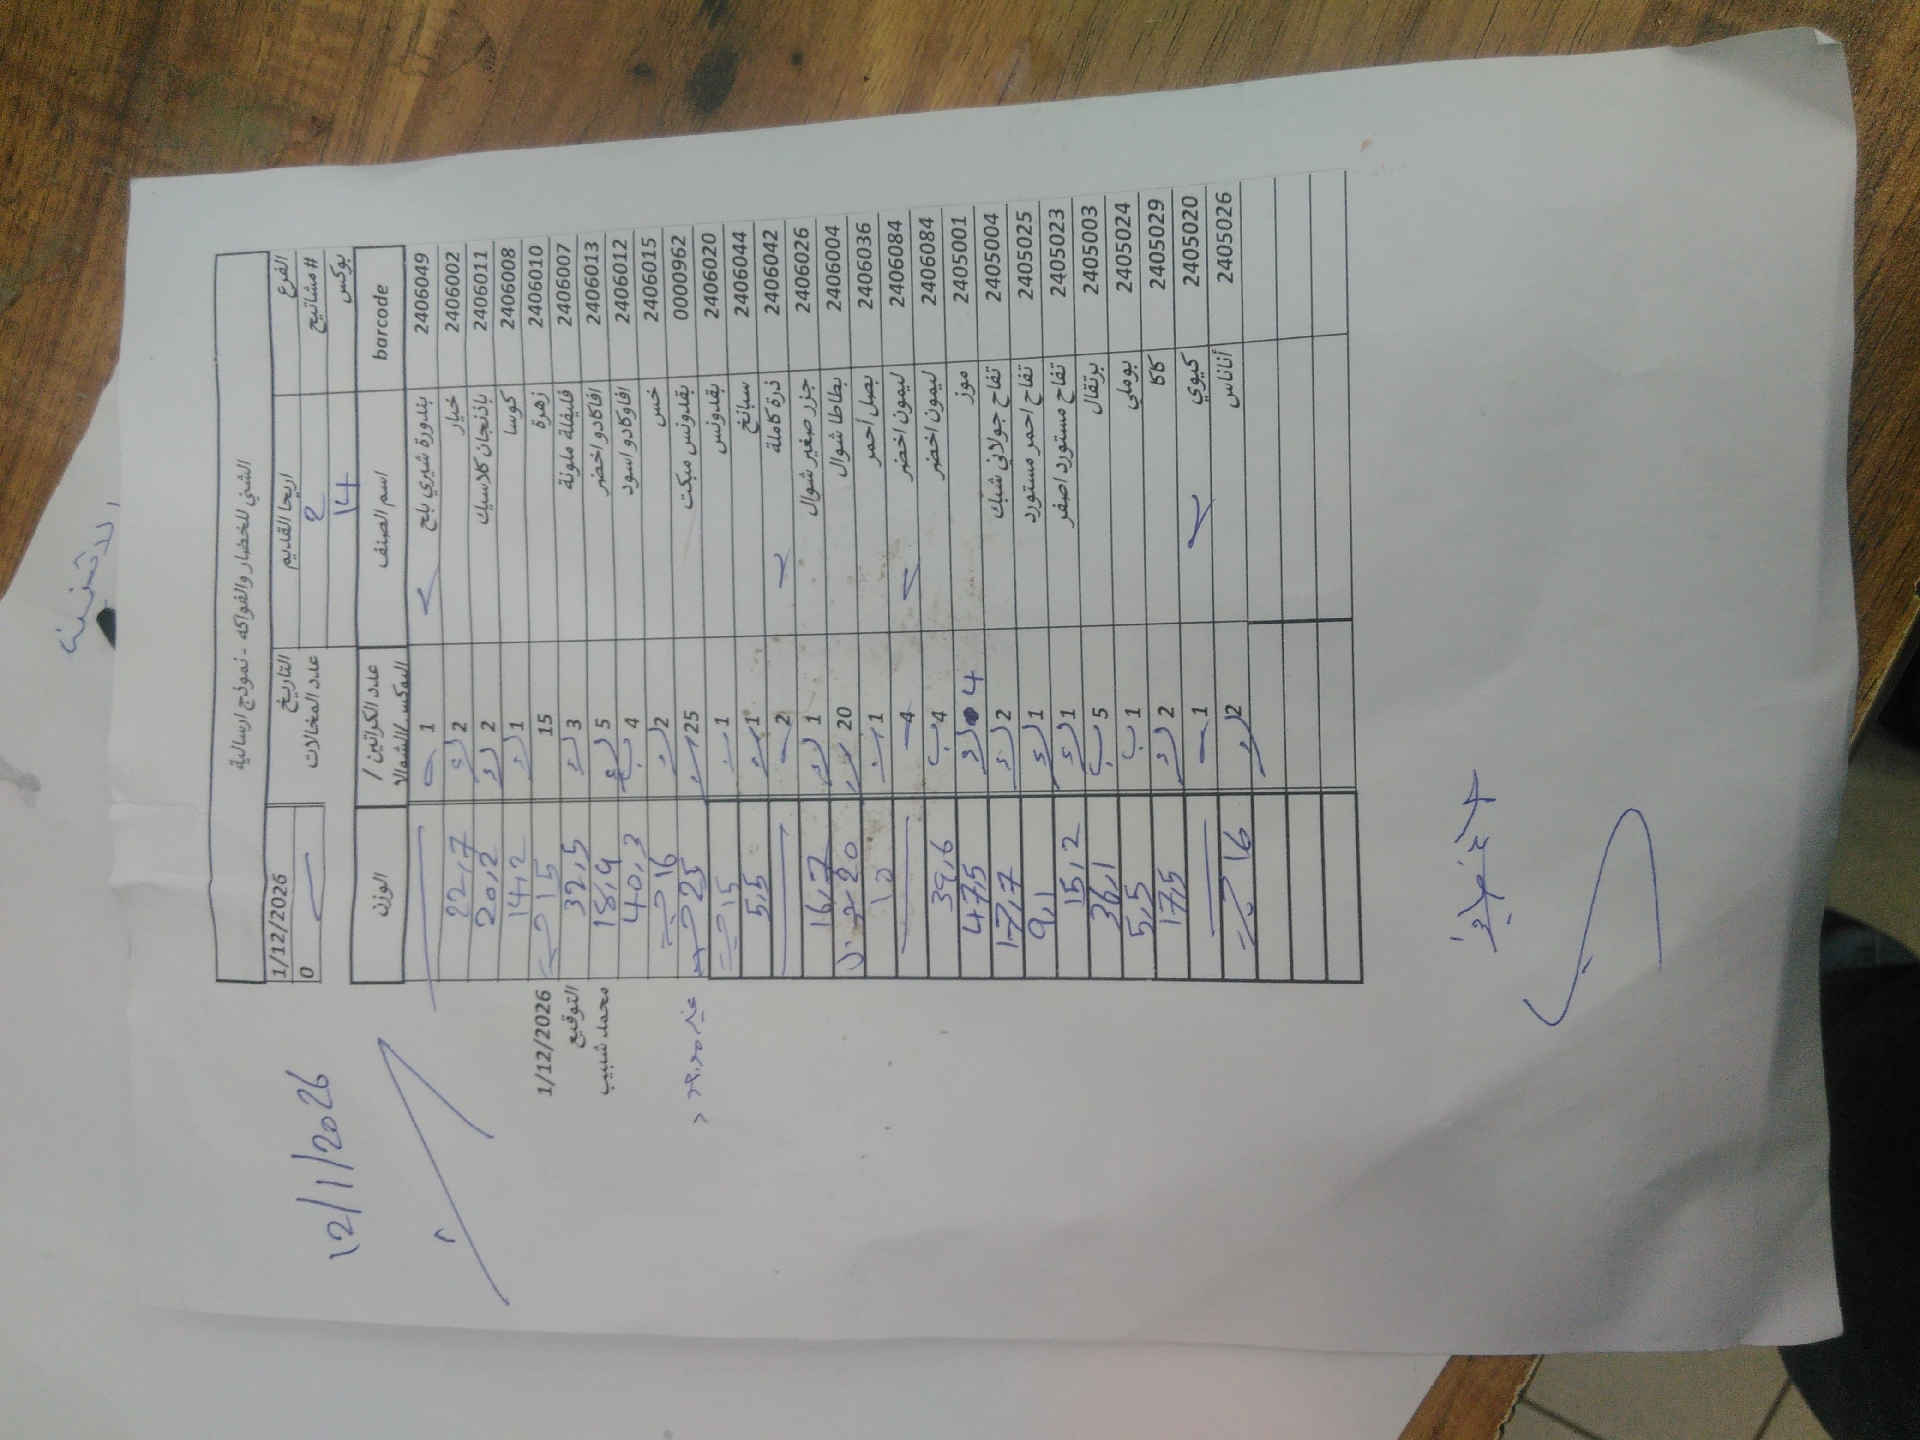 الشني للخضار والفواكه - نموذج ارسالية
الفرع اريحا القديم التاريخ 1/12/2026
# مشاتيح 2 عدد المخالات 0
بوكس 14
barcode اسم الصنف عدد الكراتين / البوكس/الشوالات الوزن
2406049 بندورة شيري بلح 1
2406002 خيار 2 22,7
2406011 باذنجان كلاسيك 2 20,2
2406008 كوسا 1 14,2
2406010 زهرة 15 15
2406007 فليفلة ملونة 3 32,5
2406013 افاكادو اخضر 5 18,9
2406012 افاوكادو اسود 4 40,3
2406015 خس 2 16
0000962 بقدونس مبكت 25 25
2406020 بقدونس 1 15
2406044 سبانخ 1 5,5
2406042 ذرة كاملة 2
2406026 جزر صغير شوال 1 16,7
2406004 بطاطا شوال 20 20
2406036 بصل احمر 1
2406084 ليمون اخضر 4
2406084 ليمون اخضر 4 39,6
2405001 موز 4 47,5
2405004 تفاح جولاني شبك 2 17,7
2405025 تفاح احمر مستورد 1 9,1
2405023 تفاح مستورد اصفر 1 15,2
2405003 برتقال 5 36,1
2405024 بوملي 1 5,5
2405029 كاكا 2 17,5
2405020 كيوي 1
2405026 أناناس 2 16
1/12/2026
التوقيع
محمد شبيب
غير موجود
12/1/2026